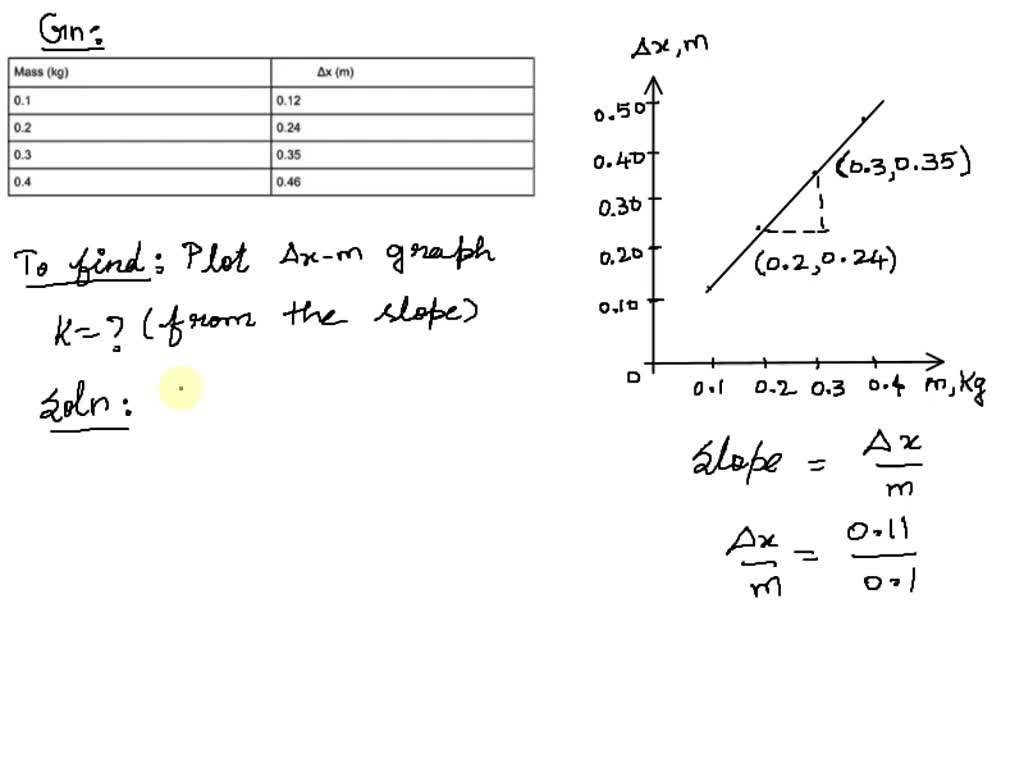 Gn:
Mass (kg) Δx (m)
0.1 0.12
0.2 0.24
0.3 0.35
0.4 0.46
To find: Plot Δx-m graph
K=? (from the slope)
Soln:
Δx, m
0.50
0.40
0.30
0.20
0.10
0
(0.3, 0.35)
(0.2, 0.24)
0.1 0.2 0.3 0.4 m, Kg
Slope = Δx/m
Δx/m = 0.11/0.1